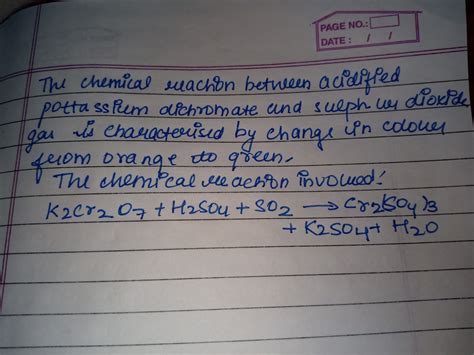 PAGE NO.:
DATE: / /
The chemical reaction between acidified
pottassium dichromate and sulphur dioxide
gas is characterised by change in colour
from orange to green.
The chemical reaction involved:
K2Cr2O7 + H2SO4 + SO2 → Cr2(SO4)3
+ K2SO4 + H2O